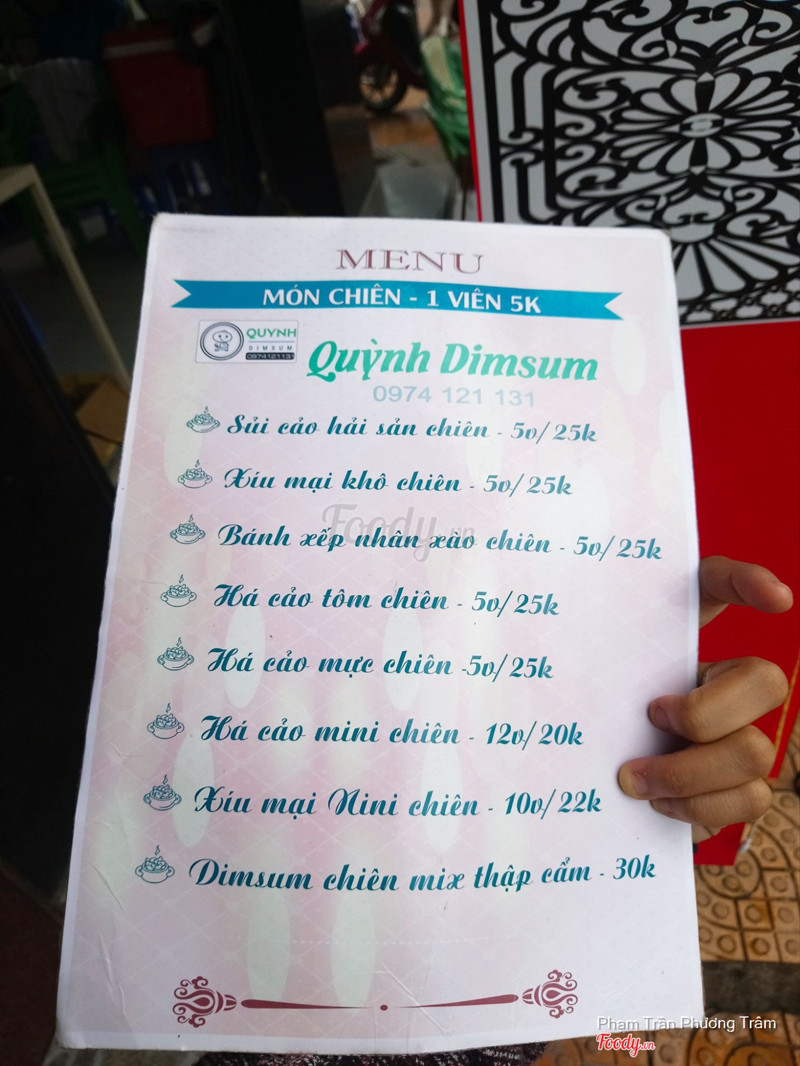 MENU
MÓN CHIÊN - 1 VIÊN 5K
QUỲNH
DIMSUM
0974121131
Quỳnh Dimsum
0974 121 131
Sủi cảo hải sản chiên - 5v/25k
Xíu mại khô chiên - 5v/25k
Foody.vn
Bánh xếp nhân xào chiên - 5v/25k
Há cảo tôm chiên - 5v/25k
Há cảo mực chiên -5v/25k
Há cảo mini chiên - 12v/20k
Xíu mại Nini chiên - 10v/22k
Dimsum chiên mix thập cẩm - 30k
Phạm Trần Phương Trâm
Foody.vn